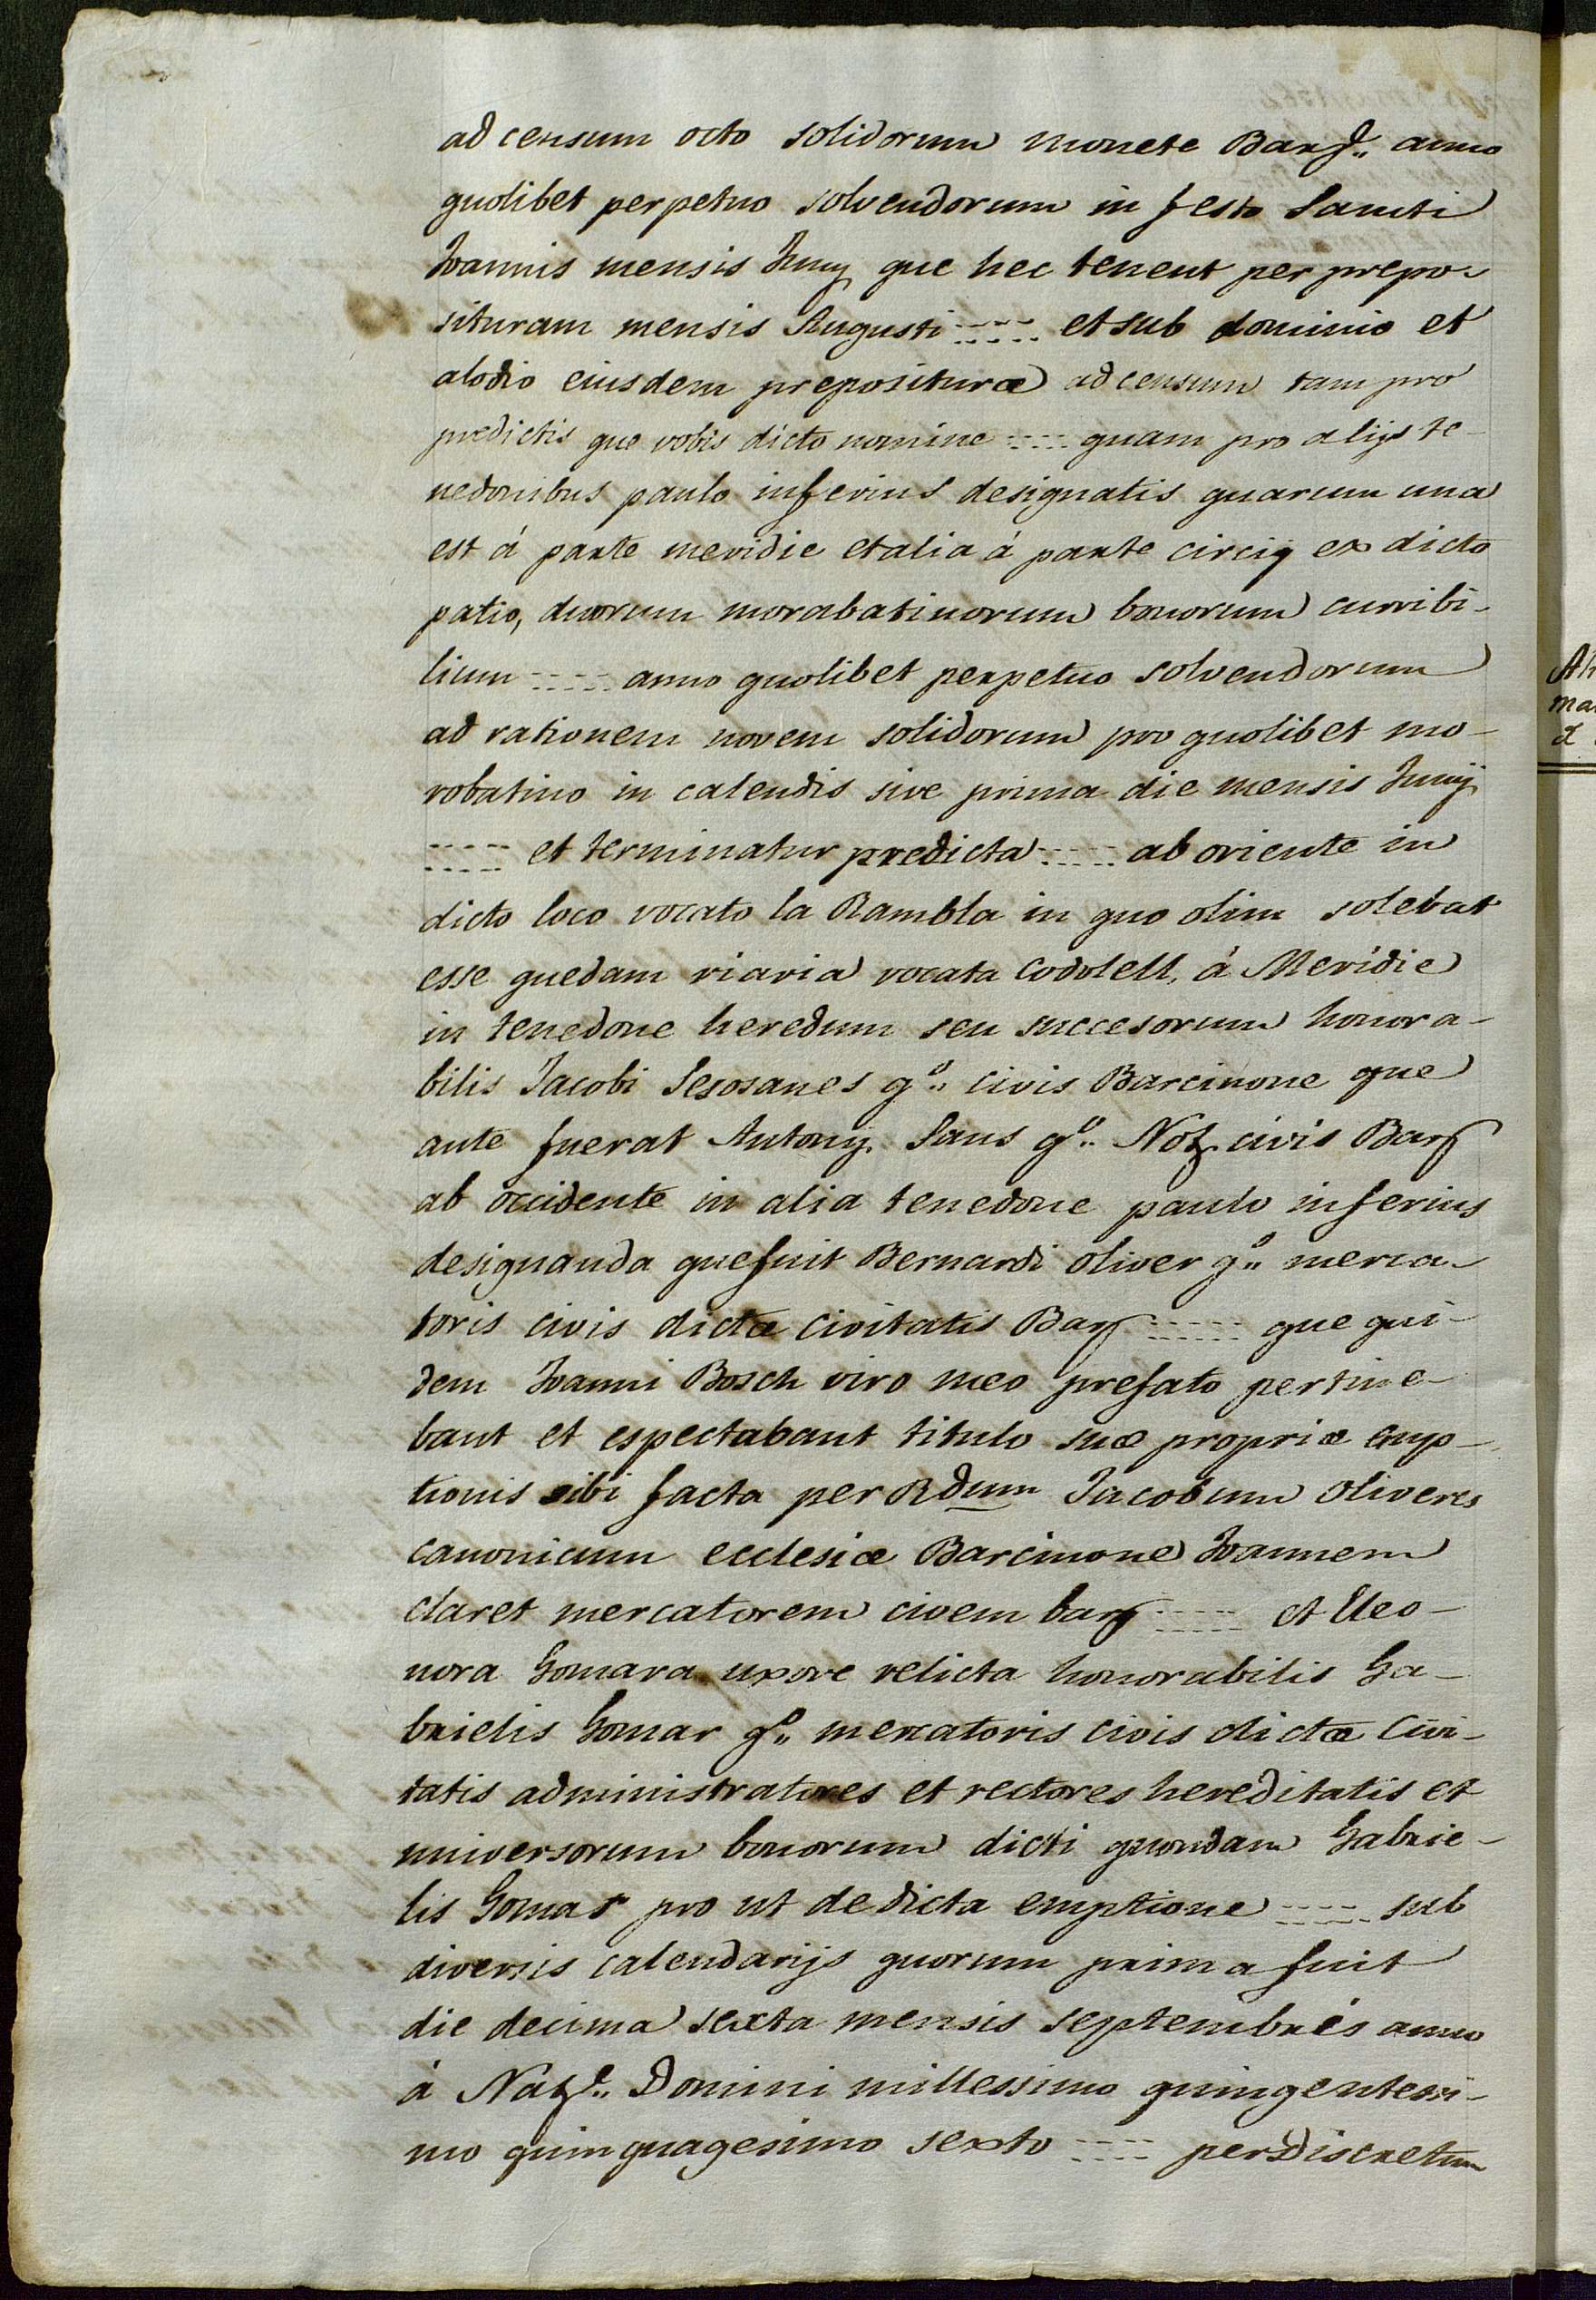 ad censum octo solidorum monete Barq.e anno
quolibet perpetuo solvendorum in festo Sancti
Joannis mensis Junij que hec tenent per prepo-
situram mensis Augusti ::::: et sub dominio et
alodio eiusdem prepositurœ ad censum tam pro
predictis que vobis dicto nomine ::::: quam pro alijs te-
nedonibus paulo inferius designatis quarum una
est á parte meridie et alia á parte circij ex dicto
patio, duorum morabatinorum bonorum curribi-
lium ::::: anno quolibet perpetuo solvendorum
ad rationem novem solidorum pro quolibet mo-
robatino in calendis sive prima die mensis Junij
::::: et terminatur predicta ::::: ab oriente in
dicto loco vocato la Rambla in quo olim solebat
esse quedam riaria vocata Codolell, á Meridie
in tenedone heredum seu succesorum honora-
bilis Jacobi Sesosanes q.o civis Barcinone que
ante fuerat Antonij Sans q.o Not. civis Barq
ab occidente in alia tenedone paulo inferius
designanda que fuit Bernardi Oliver q.o merca-
toris civis dictœ civitatis Barq ::::: que qui-
dem Joanni Bosch viro meo prefato pertine-
bant et espectabant titulo suœ propriœ emp-
tionis sibi facta per Rdum Jacobum Oliveres
canonicum ecclesiœ Barcinone Joannem
Claret mercatorem civem barq ::::: et Eleo-
nora Gomara uxore relicta honorabilis Ga-
brielis Gomar q.o mercatoris civis dictœ Civi-
tatis administratores et rectores hereditatis et
universorum bonorum dicti quondam Gabrie-
lis Gomar pro ut de dicta emptione ::::: sub
diversis calendarijs quorum prima fuit
die decima sexta mensis septembrés anno
á Nat.e Domini millessimo quingentessi-
mo quinquagesimo sexto ::::: per Discretum
Al
ma
d